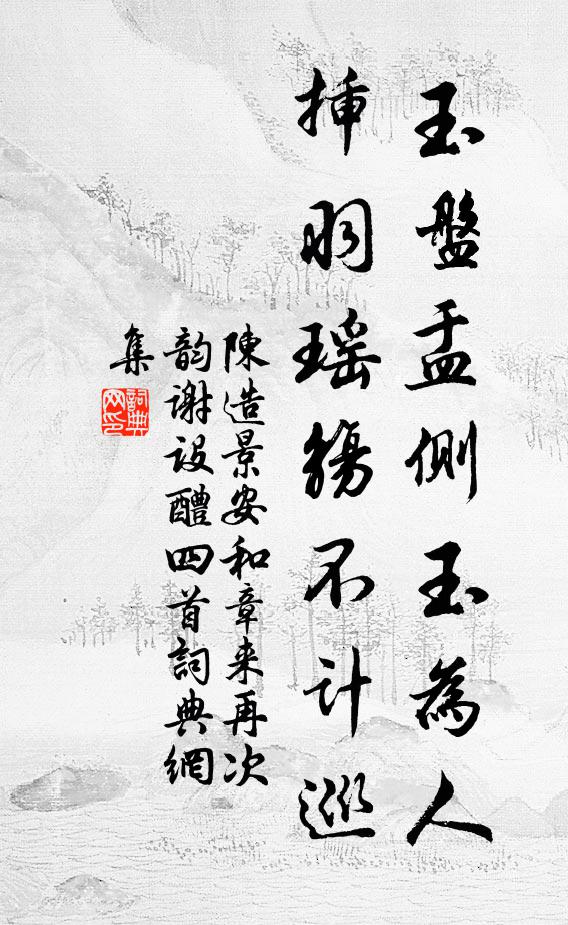 玉盤盂側玉為人
挿羽瑶觴不計巡
陳造景安和章来再次
韵谢设醴四首詞典網
集
詞典
网印